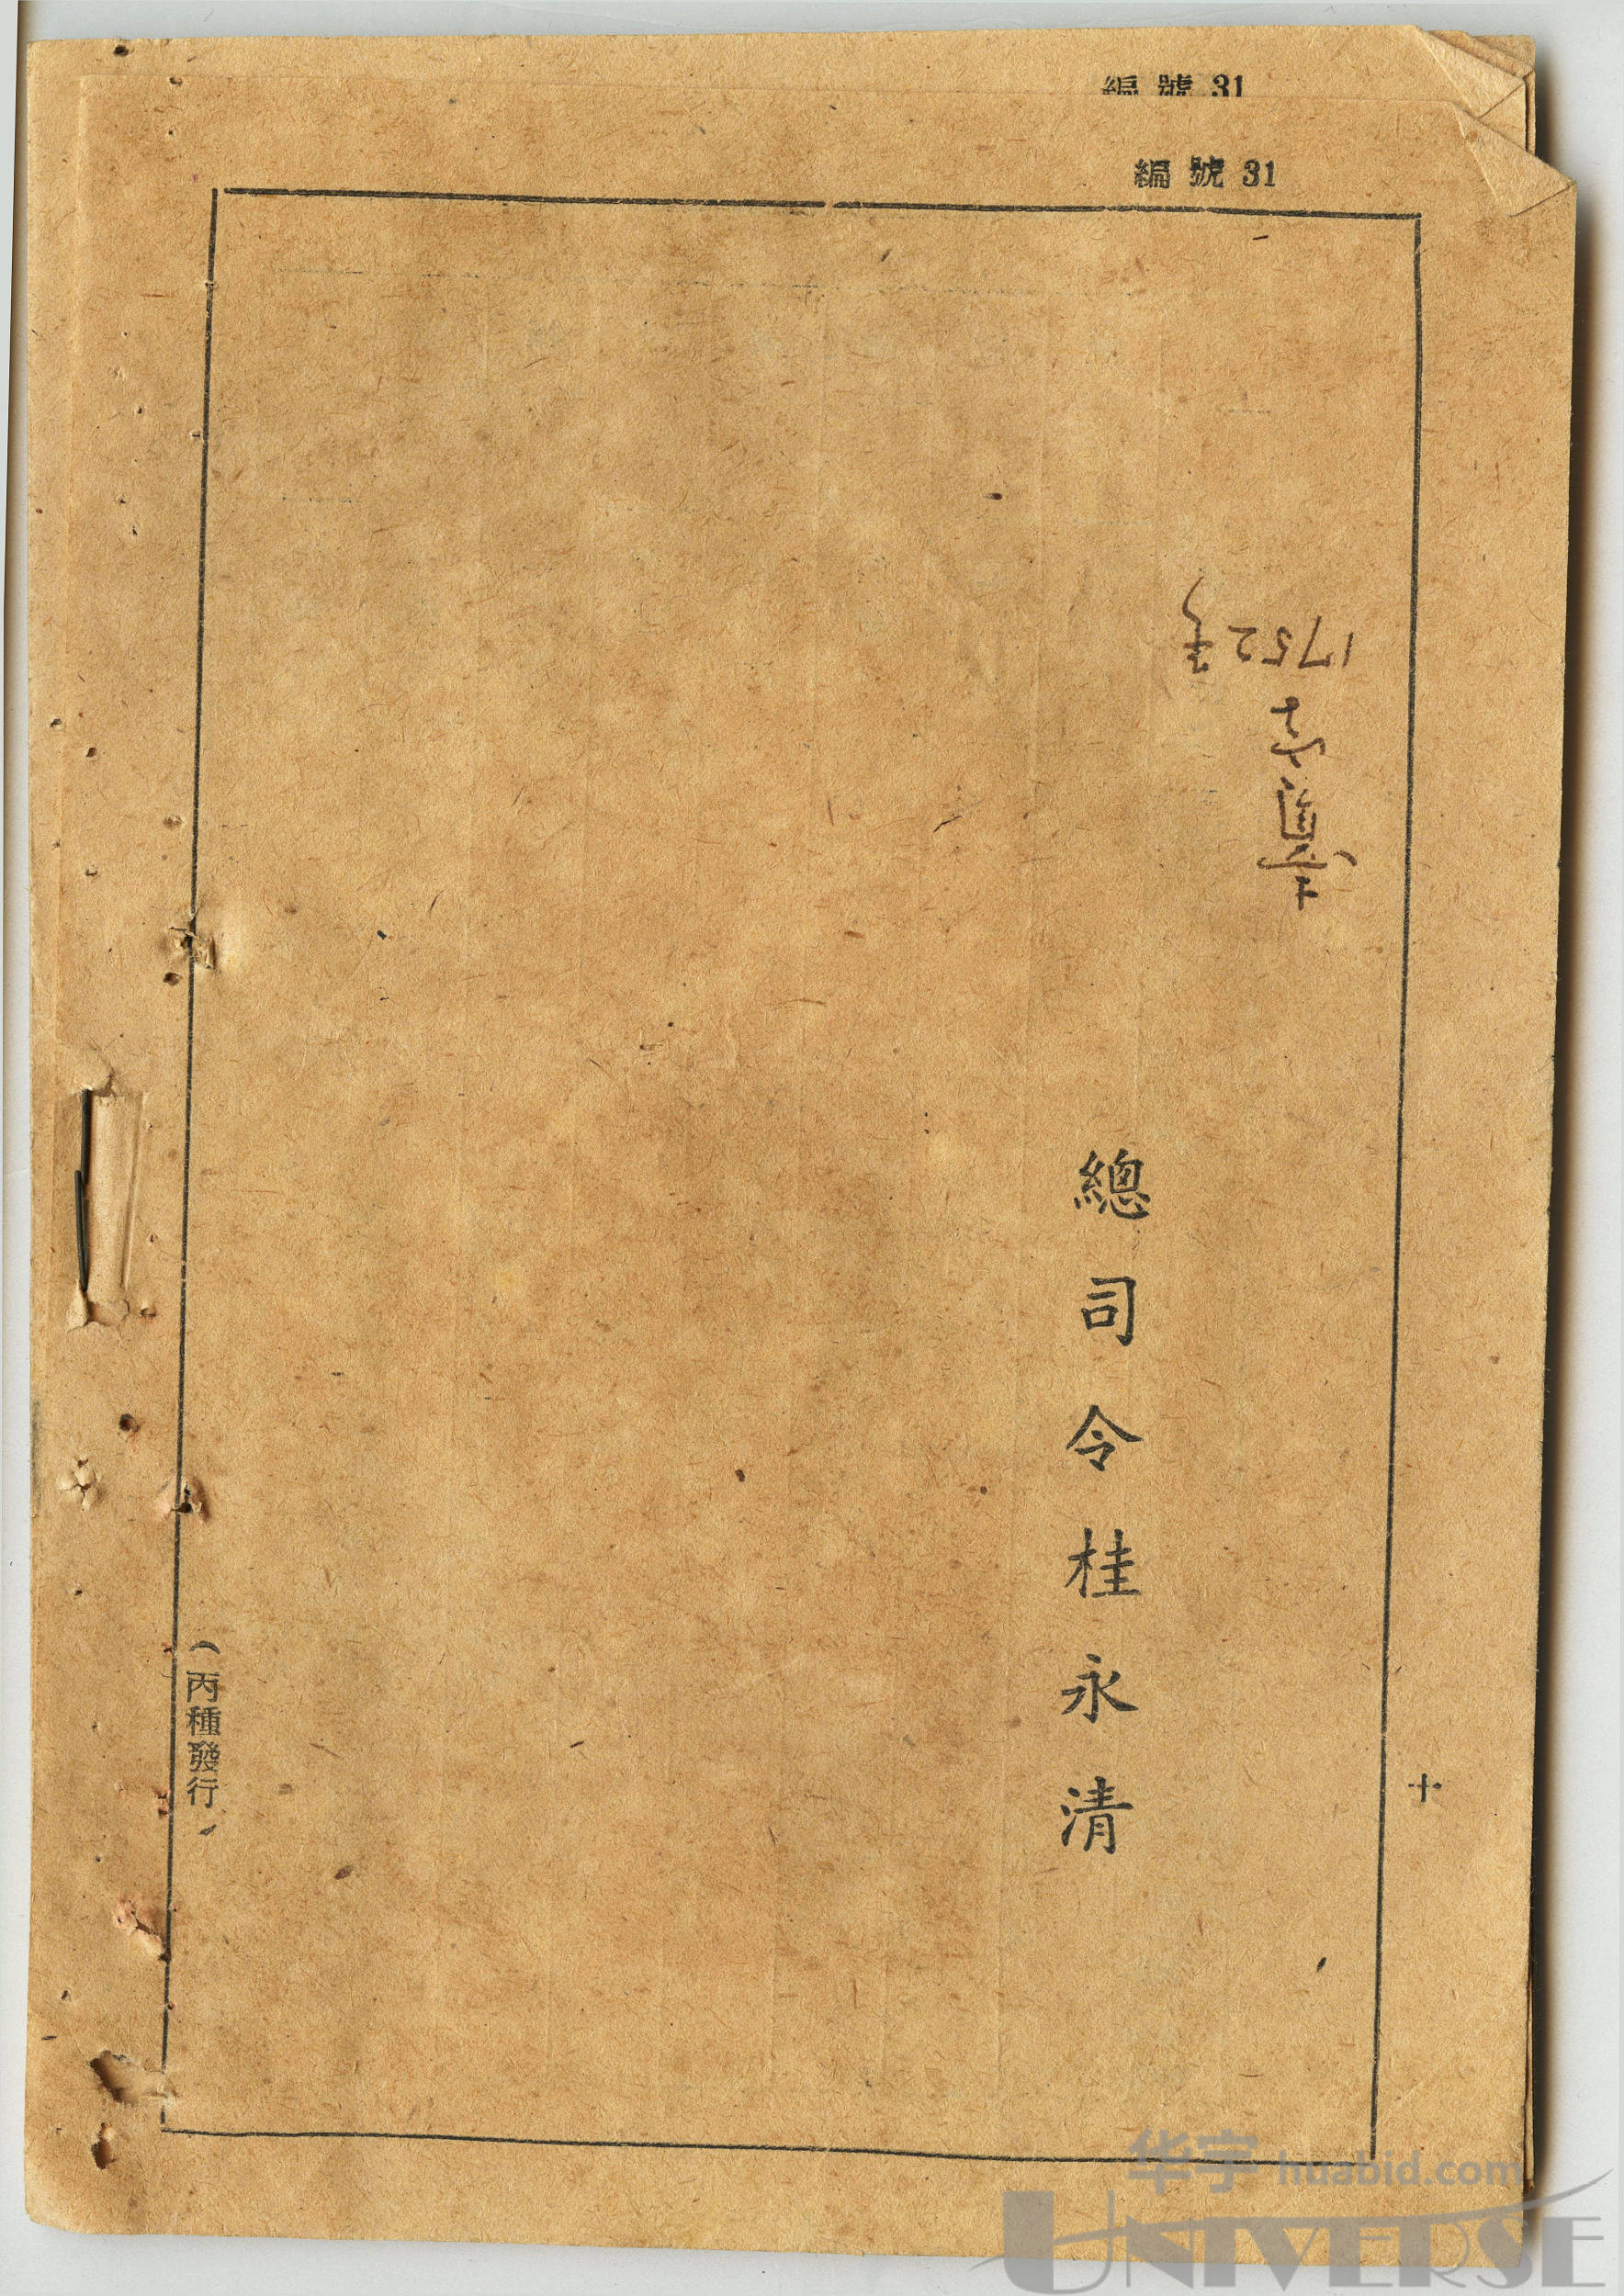 編 號 31
編 號 31
1752
總司令桂永清
十
(丙種發行
华宇 huabid.com
UNIVERSE